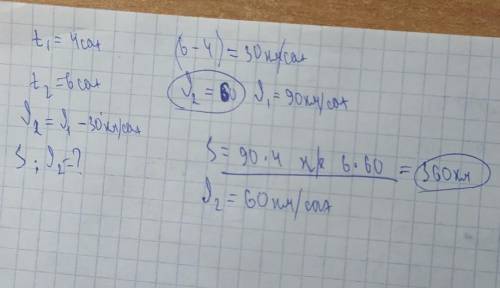 t₁ = 4 сат
t₂ = 6 сат
ϑ₂ = ϑ₁ - 30 км/сат
S; ϑ₂ = ?
(6 - 4) = 30 км/сат
ϑ₂ = 60 ϑ₁ = 90 км/сат
S = 90 · 4 н/е 6 · 60 = 360 км
ϑ₂ = 60 км/сат